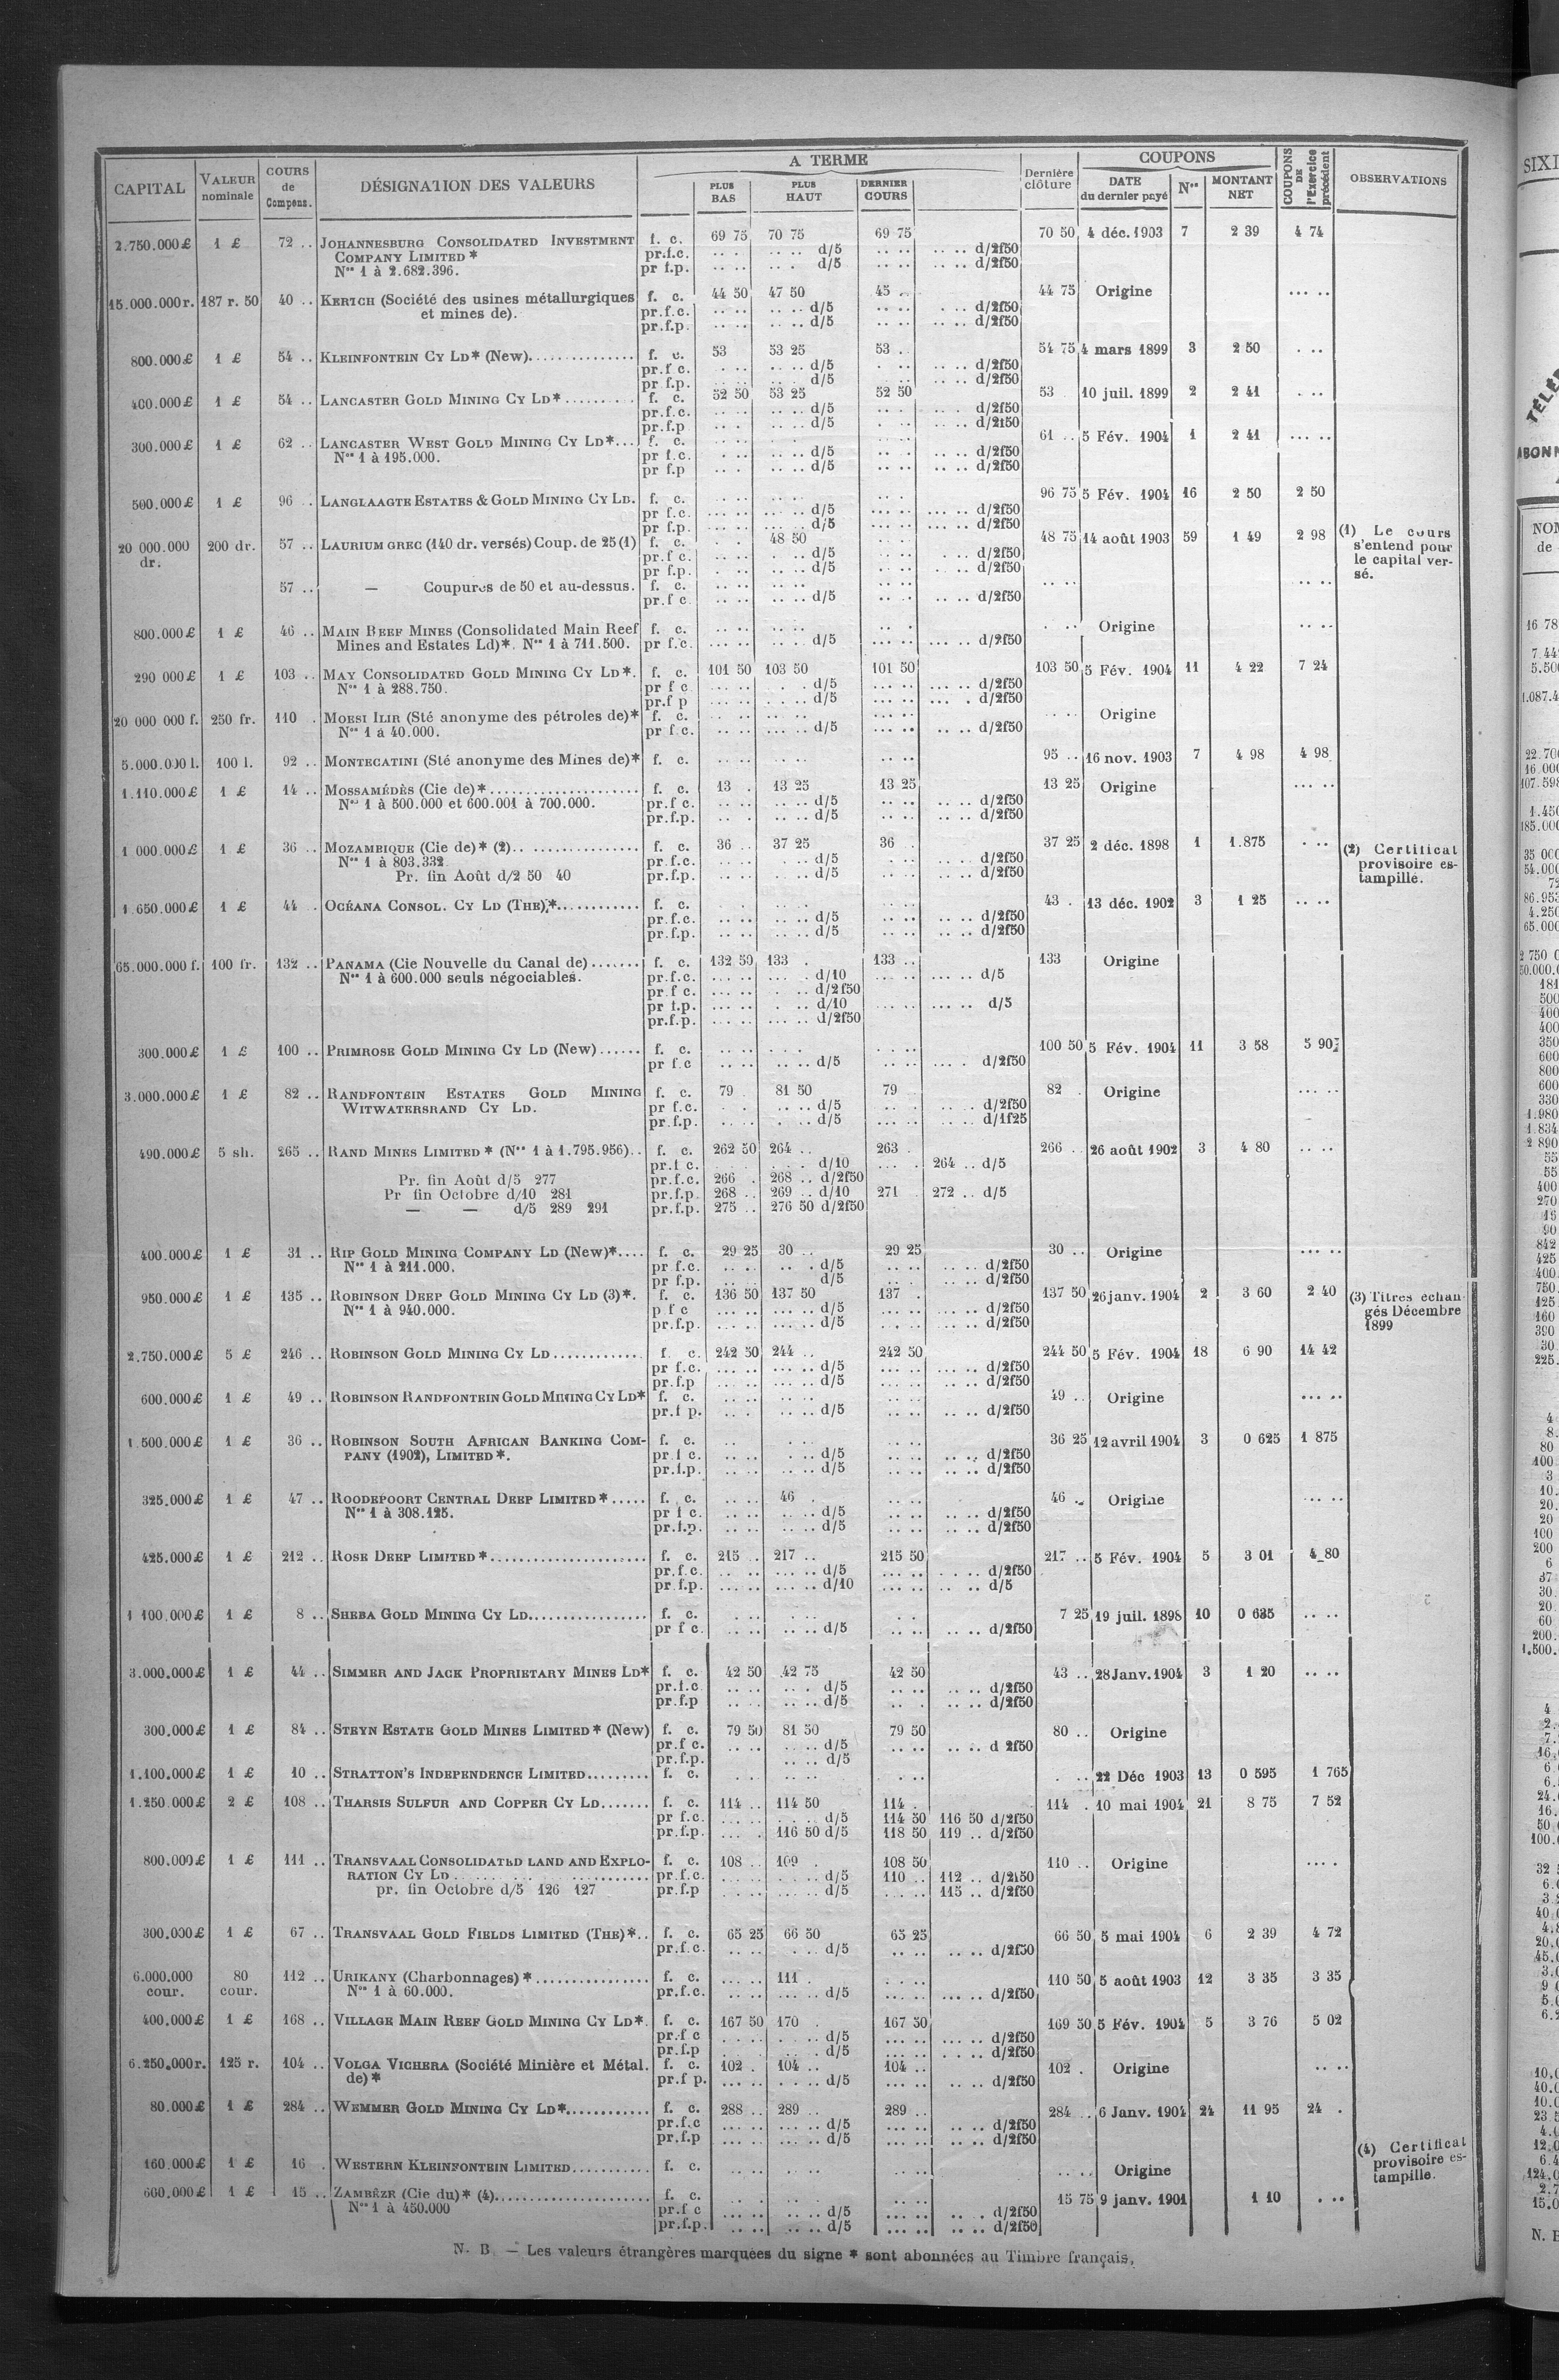 A TERME
COUPONS
CAPITAL VALEUR nominale COURS de Compens. DÉSIGNATION DES VALEURS PLUS BAS PLUS HAUT DERNIER COURS Dernière clôture DATE du dernier payé Nos MONTANT NET COUPONS DE l'Exercice précédent OBSERVATIONS
2.750.000 £ 1 £ 72 .. JOHANNESBURG CONSOLIDATED INVESTMENT f. c. 69 75 70 75 69 75 70 50 4 déc. 1903 7 2 39 4 74
COMPANY LIMITED * pr.f.c. .. .. .. .. d/5 .. .. .. .. d/2f50
Nos 1 à 2.682.396. pr f.p. .. .. .. . d/5 .. .. .. .. d/2f50
15.000.000 r. 187 r. 50 40 .. KERTCH (Société des usines métallurgiques f. c. 44 50 47 50 45 .. 44 75 Origine ... ..
et mines de). pr.f.c. .. .. .. .. d/5 .. .. . .. d/2f50
pr.f.p. .. .. .. .. d/5 .. .. .. .. d/2f50
800.000 £ 1 £ 54 .. KLEINFONTEIN CY LD * (New) f. c. 53 53 25 53 . 54 75 4 mars 1899 3 2 50 . ..
pr.f c. . .. .. .. d/5 . .. .. .. d/2f50
pr f.p. .. .. .. .. d/5 .. .. .. .. d/2f50
400.000 £ 1 £ 54 .. LANCASTER GOLD MINING CY LD * f. c. 52 50 53 25 52 50 53 . 10 juil. 1899 2 2 41 . ..
pr.f.c. .. .. .. .. d/5 .. .. .. . d/2f50
pr.f.p .. . .. .. d/5 . .. .. .. d/2f50
300.000 £ 1 £ 62 .. LANCASTER WEST GOLD MINING CY LD *... f. c. 61 .. 5 Fév. 1904 1 2 41 ... ..
Nos 1 à 195.000. pr f.c. . .. .. .. d/5 .. .. .. .. d/2f50
pr f.p .. . .. .. d/5 .. .. .. .. d/2f50
500.000 £ 1 £ 96 .. LANGLAAGTE ESTATES & GOLD MINING CY LD. f. c. 96 75 5 Fév. 1904 16 2 50 2 50
pr f.c. ... .. ... .. d/5 ... .. ... .. d/2f50
pr f.p. ... .. ... .. d/5 ... .. ... .. d/2f50
20 000.000 dr. 200 dr. 57 .. LAURIUM GREC (140 dr. versés) Coup. de 25 (1) f. c. 48 50 48 75 14 août 1903 59 1 49 2 98 (1) Le cours s'entend pour le capital versé.
pr.f c. .. .. . .. d/5 .. .. . .. d/2f50
pr f.p. .. .. .. .. d/5 .. .. .. .. d/2f50
57 .. — Coupures de 50 et au-dessus. f. c. .. .. .. ..
pr.f c. .. .. .. .. d/5 .. .. .. .. d/2f50
800.000 £ 1 £ 46 .. MAIN REEF MINES (Consolidated Main Reef f. c. . .. Origine .. ..
Mines and Estates Ld) *. Nos 1 à 711.500. pr f.c. ... .. ... .. d/5 ... .. ... .. d/2f50
290 000 £ 1 £ 103 .. MAY CONSOLIDATED GOLD MINING CY LD *. f. c. 101 50 103 50 101 50 103 50 5 Fév. 1904 11 4 22 7 24
Nos 1 à 288.750. pr f c ... .. . . d/5 ... .. ... .. d/2f50
pr.f p ... .. . .. d/5 ... .. ... . d/2f50
20 000 000 f. 250 fr. 110 . MOESI ILIR (Sté anonyme des pétroles de) * f. c. .. .. Origine
Nos 1 à 40.000. pr f.c. .. .. ... .. d/5 ... .. .. .. d/2f50
5.000.000 l. 100 l. 92 .. MONTECATINI (Sté anonyme des Mines de) * f. c. 95 .. 16 nov. 1903 7 4 98 4 98
1.110.000 £ 1 £ 14 .. MOSSAMÉDÈS (Cie de) * f. c. 13 . 13 25 13 25 13 25 Origine ... ..
Nos 1 à 500.000 et 600.001 à 700.000. pr.f c. .. .. .. .. d/5 .. .. .. .. d/2f50
pr.f.p. .. . .. .. d/5 .. .. .. .. d/2f50
1 000.000 £ 1 £ 36 .. MOZAMBIQUE (Cie de) * (2) f. c. 36 .. 37 25 36 . 37 25 2 déc. 1898 1 1.875 . .. (2) Certificat provisoire estampillé.
Nos 1 à 803.332. pr.f.c. .. .. . .. d/5 .. .. . .. d/2f50
Pr. fin Août d/2 50 40 pr.f.p. .. .. .. .. d/5 .. .. .. .. d/2f50
1 650.000 £ 1 £ 44 .. OCÉANA CONSOL. CY LD (THE) * f. c. 43 . 13 déc. 1902 3 1 25 .. ..
pr.f.c. .. .. .. .. d/5 .. .. .. .. d/2f50
pr.f.p. .. .. .. .. d/5 .. .. .. .. d/2f50
65.000.000 f. 100 fr. 132 .. PANAMA (Cie Nouvelle du Canal de) f. c. 132 50 133 . 133 .. 133 Origine
Nos 1 à 600.000 seuls négociables. pr.f.c. ... .. .. . d/10 ... .. ... .. d/5
pr.f c. ... .. . .. d/2f50
pr f.p. ... .. . .. d/10 ... .. ... .. d/5
pr.f.p. ... .. ... .. d/2f50
300.000 £ 1 £ 100 .. PRIMROSE GOLD MINING CY LD (New) f. c. 100 50 5 Fév. 1904 11 3 58 5 90
pr f.c .. .. .. .. d/5 .. .. ... . d/2f50
3.000.000 £ 1 £ 82 .. RANDFONTEIN ESTATES GOLD MINING f. c. 79 . 81 50 79 82 . Origine ... ..
WITWATERSRAND CY LD. pr f.c. . . .. .. d/5 .. . .. .. d/2f50
pr.f.p. .. . . .. d/5 ... .. .. .. d/1f25
490.000 £ 5 sh. 265 .. RAND MINES LIMITED * (Nos 1 à 1.795.956).. f. c. 262 50 264 .. 263 . 266 .. 26 août 1902 3 4 80 .. ..
pr.f c. . . d/10 ... . 264 .. d/5
Pr. fin Août d/5 277 pr.f.c. 266 . 268 .. d/2f50
Pr fin Octobre d/10 281 pr.f.p. 268 .. 269 .. d/10 271 . 272 .. d/5
— — d/5 289 291 pr.f.p. 275 .. 276 50 d/2f50
400.000 £ 1 £ 31 .. RIP GOLD MINING COMPANY LD (New) *.... f. c. 29 25 30 .. 29 25 30 .. Origine ... ..
Nos 1 à 211.000. pr f.c. .. .. .. . d/5 .. .. .. .. d/2f50
pr f.p. .. .. d/5 .. . .. .. d/2f50
950.000 £ 1 £ 135 .. ROBINSON DEEP GOLD MINING CY LD (3) *. f. c. 136 50 137 50 137 . 137 50 26 janv. 1904 2 3 60 2 40 (3) Titres échangés Décembre 1899
Nos 1 à 940.000. p f c ... .. ... .. d/5 ... .. .. .. d/2f50
pr.f.p. ... .. ... .. d/5 ... .. .. .. d/2f50
2.750.000 £ 5 £ 246 .. ROBINSON GOLD MINING CY LD f. c. 242 50 244 .. 242 50 244 50 5 Fév. 1904 18 6 90 14 42
pr f.c. ... .. ... .. d/5 ... .. .. .. d/2f50
pr.f.p ... .. ... .. d/5 ... .. .. .. d/2f50
600.000 £ 1 £ 49 .. ROBINSON RANDFONTEIN GOLD MINING CY LD * f. c. 49 .. Origine ... ..
pr.f p. .. . .. .. d/5 .. .. .. .. d/2f50
1 500.000 £ 1 £ 36 .. ROBINSON SOUTH AFRICAN BANKING COM- f. c. 36 25 12 avril 1904 3 0 625 1 875
PANY (1902), LIMITED *. pr f c. .. .. . .. d/5 .. .. .. .. d/2f50
pr.f.p. .. .. .. .. d/5 .. .. .. .. d/2f50
325.000 £ 1 £ 47 .. ROODEPOORT CENTRAL DEEP LIMITED * f. c. .. .. 46 . 46 .. Origine ... ..
Nos 1 à 308.125. pr f c. .. .. .. .. d/5 .. .. .. .. d/2f50
pr.f.p. .. .. .. .. d/5 .. .. .. .. d/2f50
425.000 £ 1 £ 212 .. ROSE DEEP LIMITED * f. c. 215 .. 217 .. 215 50 217 .. 5 Fév. 1904 5 3 01 4 80
pr.f.c. .. .. ... .. d/5 ... .. . .. d/2f50
pr.f.p. ... .. ... .. d/10 ... .. .. .. d/5
1 100.000 £ 1 £ 8 .. SHEBA GOLD MINING CY LD f. c. 7 25 19 juil. 1898 10 0 635 .. ..
pr f c. .. .. .. .. d/5 .. .. .. .. d/2f50
3.000.000 £ 1 £ 44 .. SIMMER AND JACK PROPRIETARY MINES LD * f. c. 42 50 42 75 42 50 43 .. 28 Janv. 1904 3 1 20 .. ..
pr.f.c .. .. .. . d/5 .. .. .. .. d/2f50
pr.f.p .. .. .. .. d/5 .. . .. .. d/2f50
300.000 £ 1 £ 84 .. STEYN ESTATE GOLD MINES LIMITED * (New) f. c. 79 50 81 50 79 50 80 .. Origine
pr.f c. .. .. .. .. d/5 .. .. .. .. d 2f50
pr.f.p. .. .. d/5
1.100.000 £ 1 £ 10 .. STRATTON'S INDEPENDENCE LIMITED f. c. . .. 22 Déc 1903 13 0 595 1 765
1.250.000 £ 2 £ 108 .. THARSIS SULFUR AND COPPER CY LD f. c. 114 .. 114 50 114 . 114 . 10 mai 1904 21 8 75 7 52
pr f.c. ... .. .. d/5 114 50 116 50 d/2f50
pr.f.p. ... . 116 50 d/5 118 50 119 .. d/2f50
800.000 £ 1 £ 111 .. TRANSVAAL CONSOLIDATED LAND AND EXPLO- f. c. 108 .. 109 . 108 50 110 .. Origine ... .
RATION CY LD pr.f.c. ... .. . .. d/5 110 .. 112 .. d/2f50
pr. fin Octobre d/5 126 127 pr.f.p . .. .. ... .. d/5 . .. . 115 .. d/2f50
300.000 £ 1 £ 67 .. TRANSVAAL GOLD FIELDS LIMITED (THE) *.. f. c. 65 25 66 50 65 25 66 50 5 mai 1904 6 2 39 4 72
pr.f.c. .. .. . .. d/5 .. .. .. .. d/2f50
6.000.000 cour. 80 cour. 112 .. URIKANY (Charbonnages) * f. c. ... .. 111 . 110 50 5 août 1903 12 3 35 3 35
Nos 1 à 60.000. pr.f.c. .. .. ... .. d/5 ... .. ... .. d/2f50
400.000 £ 1 £ 168 .. VILLAGE MAIN REEF GOLD MINING CY LD *. f. c. 167 50 170 . 167 50 169 50 5 Fév. 1904 5 3 76 5 02
pr.f c . .. . . .. d/5 ... .. ... .. d/2f50
pr.f.p . .. . . .. d/5 ... .. ... .. d/2f50
6.250.000 r. 125 r. 104 .. VOLGA VICHERA (Société Minière et Métal. f. c. 102 . 104 .. 104 .. 102 . Origine .. ..
de) * pr.f p. ... .. . .. d/5 ... .. .. .. d/2f50
80.000 £ 1 £ 284 .. WEMMER GOLD MINING CY LD * f. c. 288 .. 289 .. 289 .. 284 .. 6 Janv. 1904 24 11 95 24 .
pr.f.c ... .. ... .. d/5 ... .. .. .. d/2f50
pr.f.p ... .. ... .. d/5 ... .. .. .. d/2f50
160.000 £ 1 £ 16 . WESTERN KLEINFONTEIN LIMITED f. c. .. .. Origine
600.000 £ 1 £ 15 .. ZAMBÈZE (Cie du) * (4) f. c. 15 75 9 janv. 1901 1 10 . .. (4) Certificat provisoire estampille.
Nos 1 à 450.000 pr.f c ... .. .. .. d/5 ... .. .. . d/2f50
pr.f.p. .. .. .. .. d/5 ... .. .. .. d/2f50
N. B. — Les valeurs étrangères marquées du signe * sont abonnées au Timbre français.